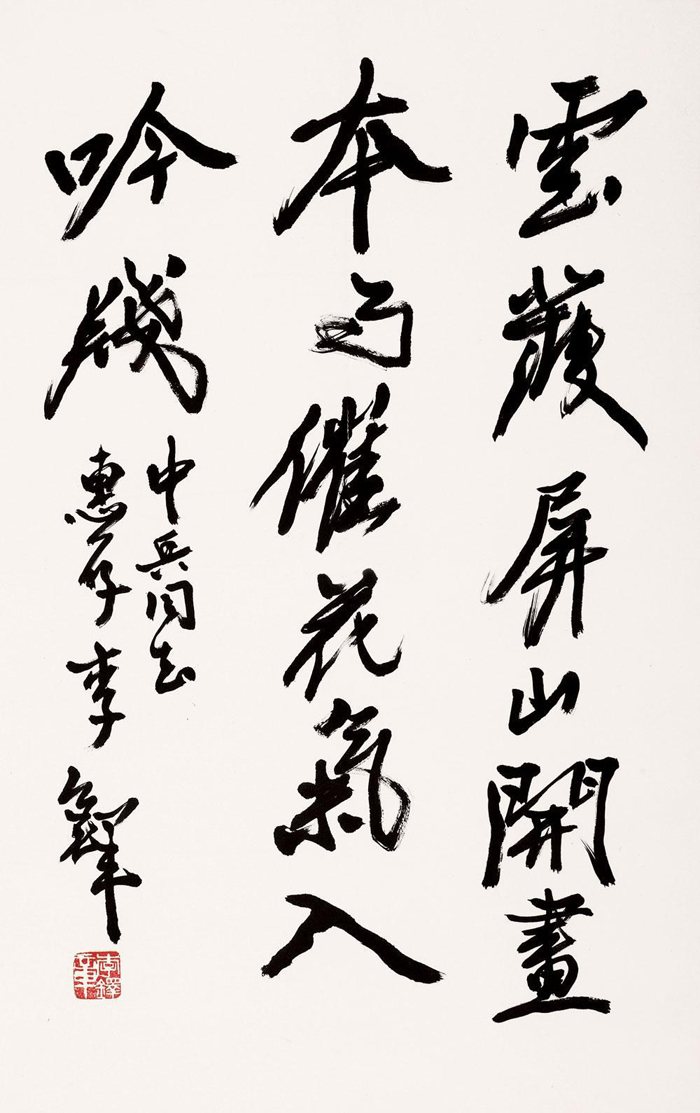 雲護屏山開畫
本雨催花氣入
吟牋
中兵同志
惠存李鐸
李鐸